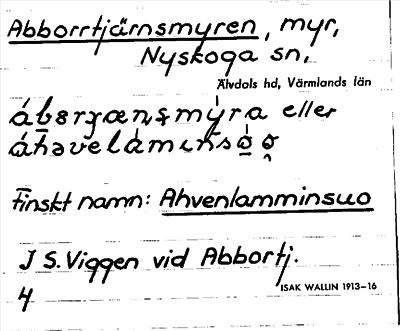 Abborrtjärnsmyren, myr,
Nyskoga sn,
Älvdals hd, Värmlands län
eller
Finskt namn: Ahvenlamminsuo
J S. Viggen vid Abbortj.
4
ISAK WALLIN 1913-16